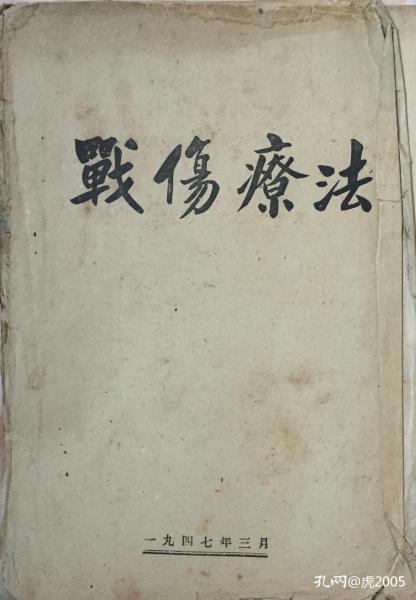 戰傷療法
一九四七年三月
孔网@虎2005